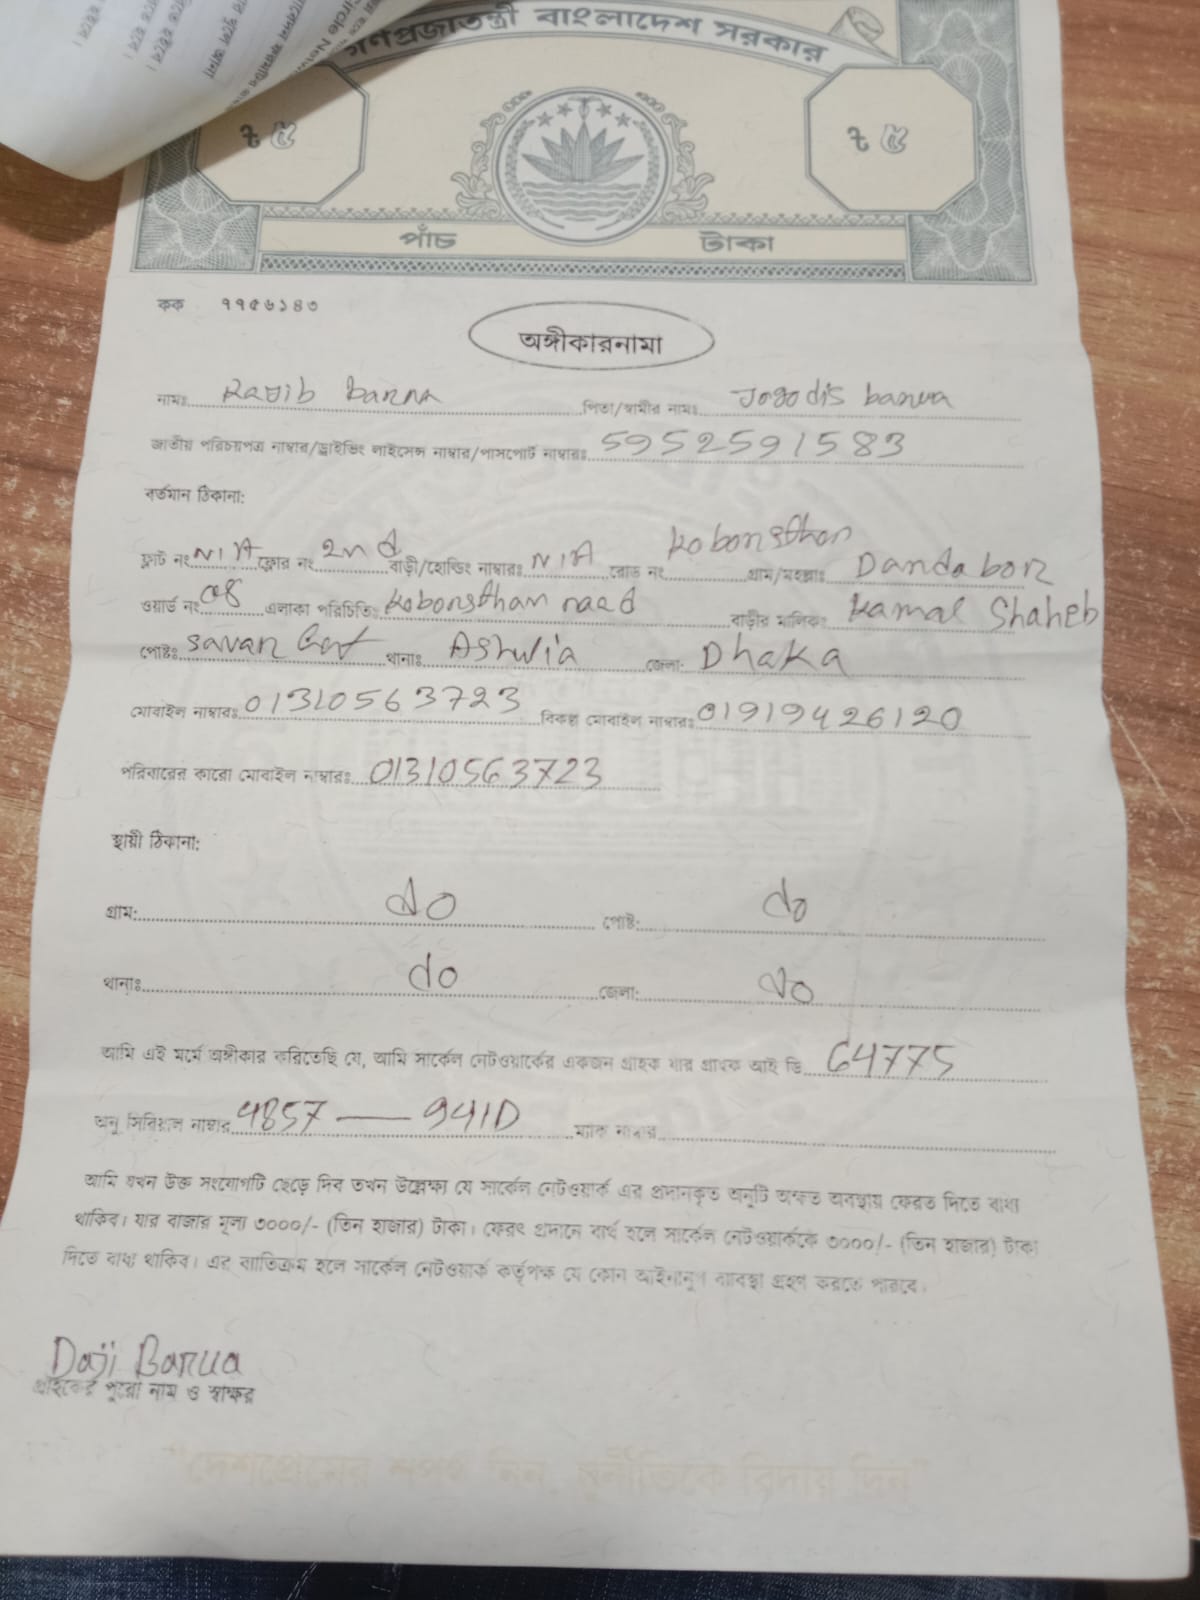 গণপ্রজাতন্ত্রী বাংলাদেশ সরকার
৳ ৫ ৳ ৫
পাঁচ টাকা
কক ৭৭৫৬১৪৩
অঙ্গীকারনামা
নামঃ Barua পিতা/স্বামীর নামঃ Jogodis barua
জাতীয় পরিচয়পত্র নাম্বার/ড্রাইভিং লাইসেন্স নাম্বার/পাসপোর্ট নাম্বারঃ 5952591583
বর্তমান ঠিকানা:
ফ্লাট নং N/A ফ্লোর নং 2nd বাড়ী/হোল্ডিং নাম্বারঃ N/A রোড নং kobonsthan গ্রাম/মহল্লাঃ Dandabor
ওয়ার্ড নং 08 এলাকা পরিচিতিঃ kobonsthan road বাড়ীর মালিকঃ kamal Shaheb
পোষ্টঃ savar Cant থানাঃ Ashulia জেলা: Dhaka
মোবাইল নাম্বারঃ 01310563723 বিকল্প মোবাইল নাম্বারঃ 01919426120
পরিবারের কারো মোবাইল নাম্বারঃ 01310563723
স্থায়ী ঠিকানা:
গ্রাম: do পোষ্ট: do
থানাঃ do জেলা: do
আমি এই মর্মে অঙ্গীকার করিতেছি যে, আমি সার্কেল নেটওয়ার্কের একজন গ্রাহক যার গ্রাহক আই ডি 64775
অনু সিরিয়াল নাম্বার 4857 — 941D ম্যাক নাম্বার
আমি যখন উক্ত সংযোগটি ছেড়ে দিব তখন উল্লেক্ষ্য যে সার্কেল নেটওয়ার্ক এর প্রদানকৃত অনুটি অক্ষত অবস্থায় ফেরত দিতে বাধ্য
থাকিব। যার বাজার মূল্য ৩০০০/- (তিন হাজার) টাকা। ফেরৎ প্রদানে ব্যর্থ হলে সার্কেল নেটওয়ার্ককে ৩০০০/- (তিন হাজার) টাকা
দিতে বাধ্য থাকিব। এর ব্যতিক্রম হলে সার্কেল নেটওয়ার্ক কর্তৃপক্ষ যে কোন আইনানুগ ব্যাবস্থা গ্রহণ করতে পারবে।
Barua
গ্রাহকের পুরো নাম ও স্বাক্ষর
"দেশপ্রেমের শপথ নিন, দুর্নীতিকে বিদায় দিন"